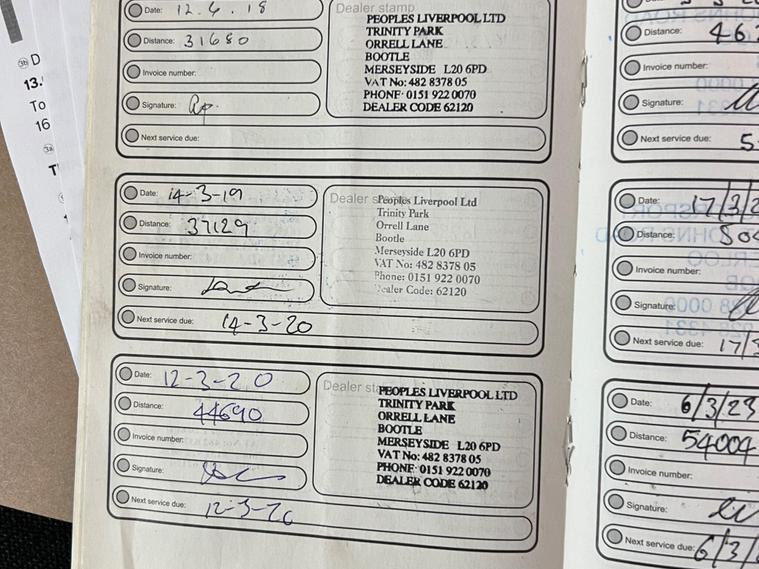 Date: 12.4.18
Distance: 31680
Invoice number:
Signature:
Next service due:
Dealer stamp
PEOPLES LIVERPOOL LTD
TRINITY PARK
ORRELL LANE
BOOTLE
MERSEYSIDE L20 6PD
VAT No: 482 8378 05
PHONE: 0151 922 0070
DEALER CODE 62120
Date: 14-3-19
Distance: 37129
Invoice number:
Signature:
Next service due: 14-3-20
Dealer
Peoples Liverpool Ltd
Trinity Park
Orrell Lane
Bootle
Merseyside L20 6PD
VAT No: 482 8378 05
Phone: 0151 922 0070
Dealer Code: 62120
Date: 12-3-20
Distance: 44690
Invoice number:
Signature:
Next service due: 12-3-20
Dealer
PEOPLES LIVERPOOL LTD
TRINITY PARK
ORRELL LANE
BOOTLE
MERSEYSIDE L20 6PD
VAT No: 482 8378 05
PHONE: 0151 922 0070
DEALER CODE 62120
Distance: 46
Invoice number:
Signature:
Next service due: 5
Date: 17/3/2
Distance:
Invoice number:
Signature:
Next service due: 17/
Date: 6/3/23
Distance: 54004
Invoice number:
Signature:
Next service due: 6/3/
D
13.
To
16